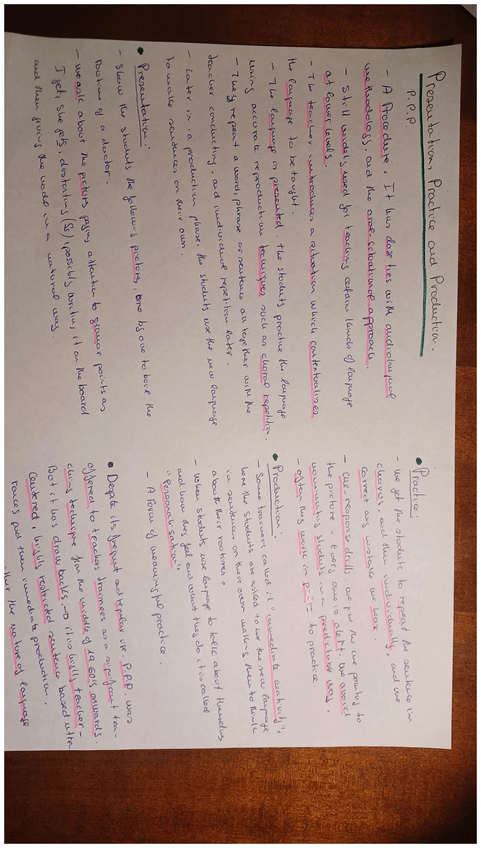 Presentation, Practice and Production.
P.P.P
- A Procedure. It has close ties with audiolingual
methodology, and the oral-situational approach.
- Still widely used for teaching certain kinds of language
at lower levels.
- The teacher introduces a situation which contextualizes
the language to be taught
- The language is presented. The students practice the language
using accurate reproduction techniques such as choral repetition
- They repeat a word, phrase or sentence all together with the
teacher conducting, and individual repetition later.
- Later in a production phase, the students use the new language
to make sentences on their own.
• Presentation:
- Show the students the following pictures, one by one to build the
routine of a doctor.
- We ask about the pictures paying attention to grammar points as
I get, she gets, dictating (s), possibly writing it on the board
and then giving the model in a natural way.
• Practice:
- We get the students to repeat the sentence in
chorus, and then individually, and we
correct any mistake we hear.
- Cue-response drills.
the picture
predictable way.
- often they work in to practice
• Production:
- Some trainers called it "immediate creativity",
here the students are asked to use the new language
in sentences on their own making them to think
about their routines.
- When students use language to talk about themselves
and how they feel and what they do it is called
"Personalisation"
- A form of meaningful practice.
• Despite its frequent and regular use, P.P.P. was
offered to teachers trainees as a significant tea-
ching technique from the middle of 1960's onwards.
But it has drawbacks → it is highly teacher-
centered; highly restricted sentence based utte-
rances and then immediate production.
the nature of language